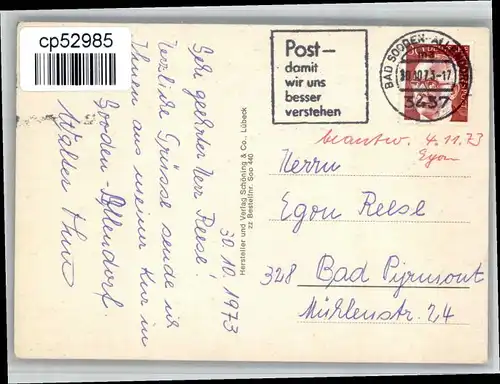 cp52985
Post–
damit
wir uns
besser
verstehen
BAD SOODEN-ALLENDORF
30.10.73-17
3437
Sehr geehrter Herr Reese!
Herzliche Grüsse sende ich
Ihnen aus meiner Kur in
Sooden-Allendorf.
Walter
30.10.1973
Hersteller und Verlag Schöning & Co., Lübeck
zz Bestellnr. Soo 440
beantw. 4.11.73
Egon
Herrn
Egon Reese
328 Bad Pyrmont
Mühlenstr. 24